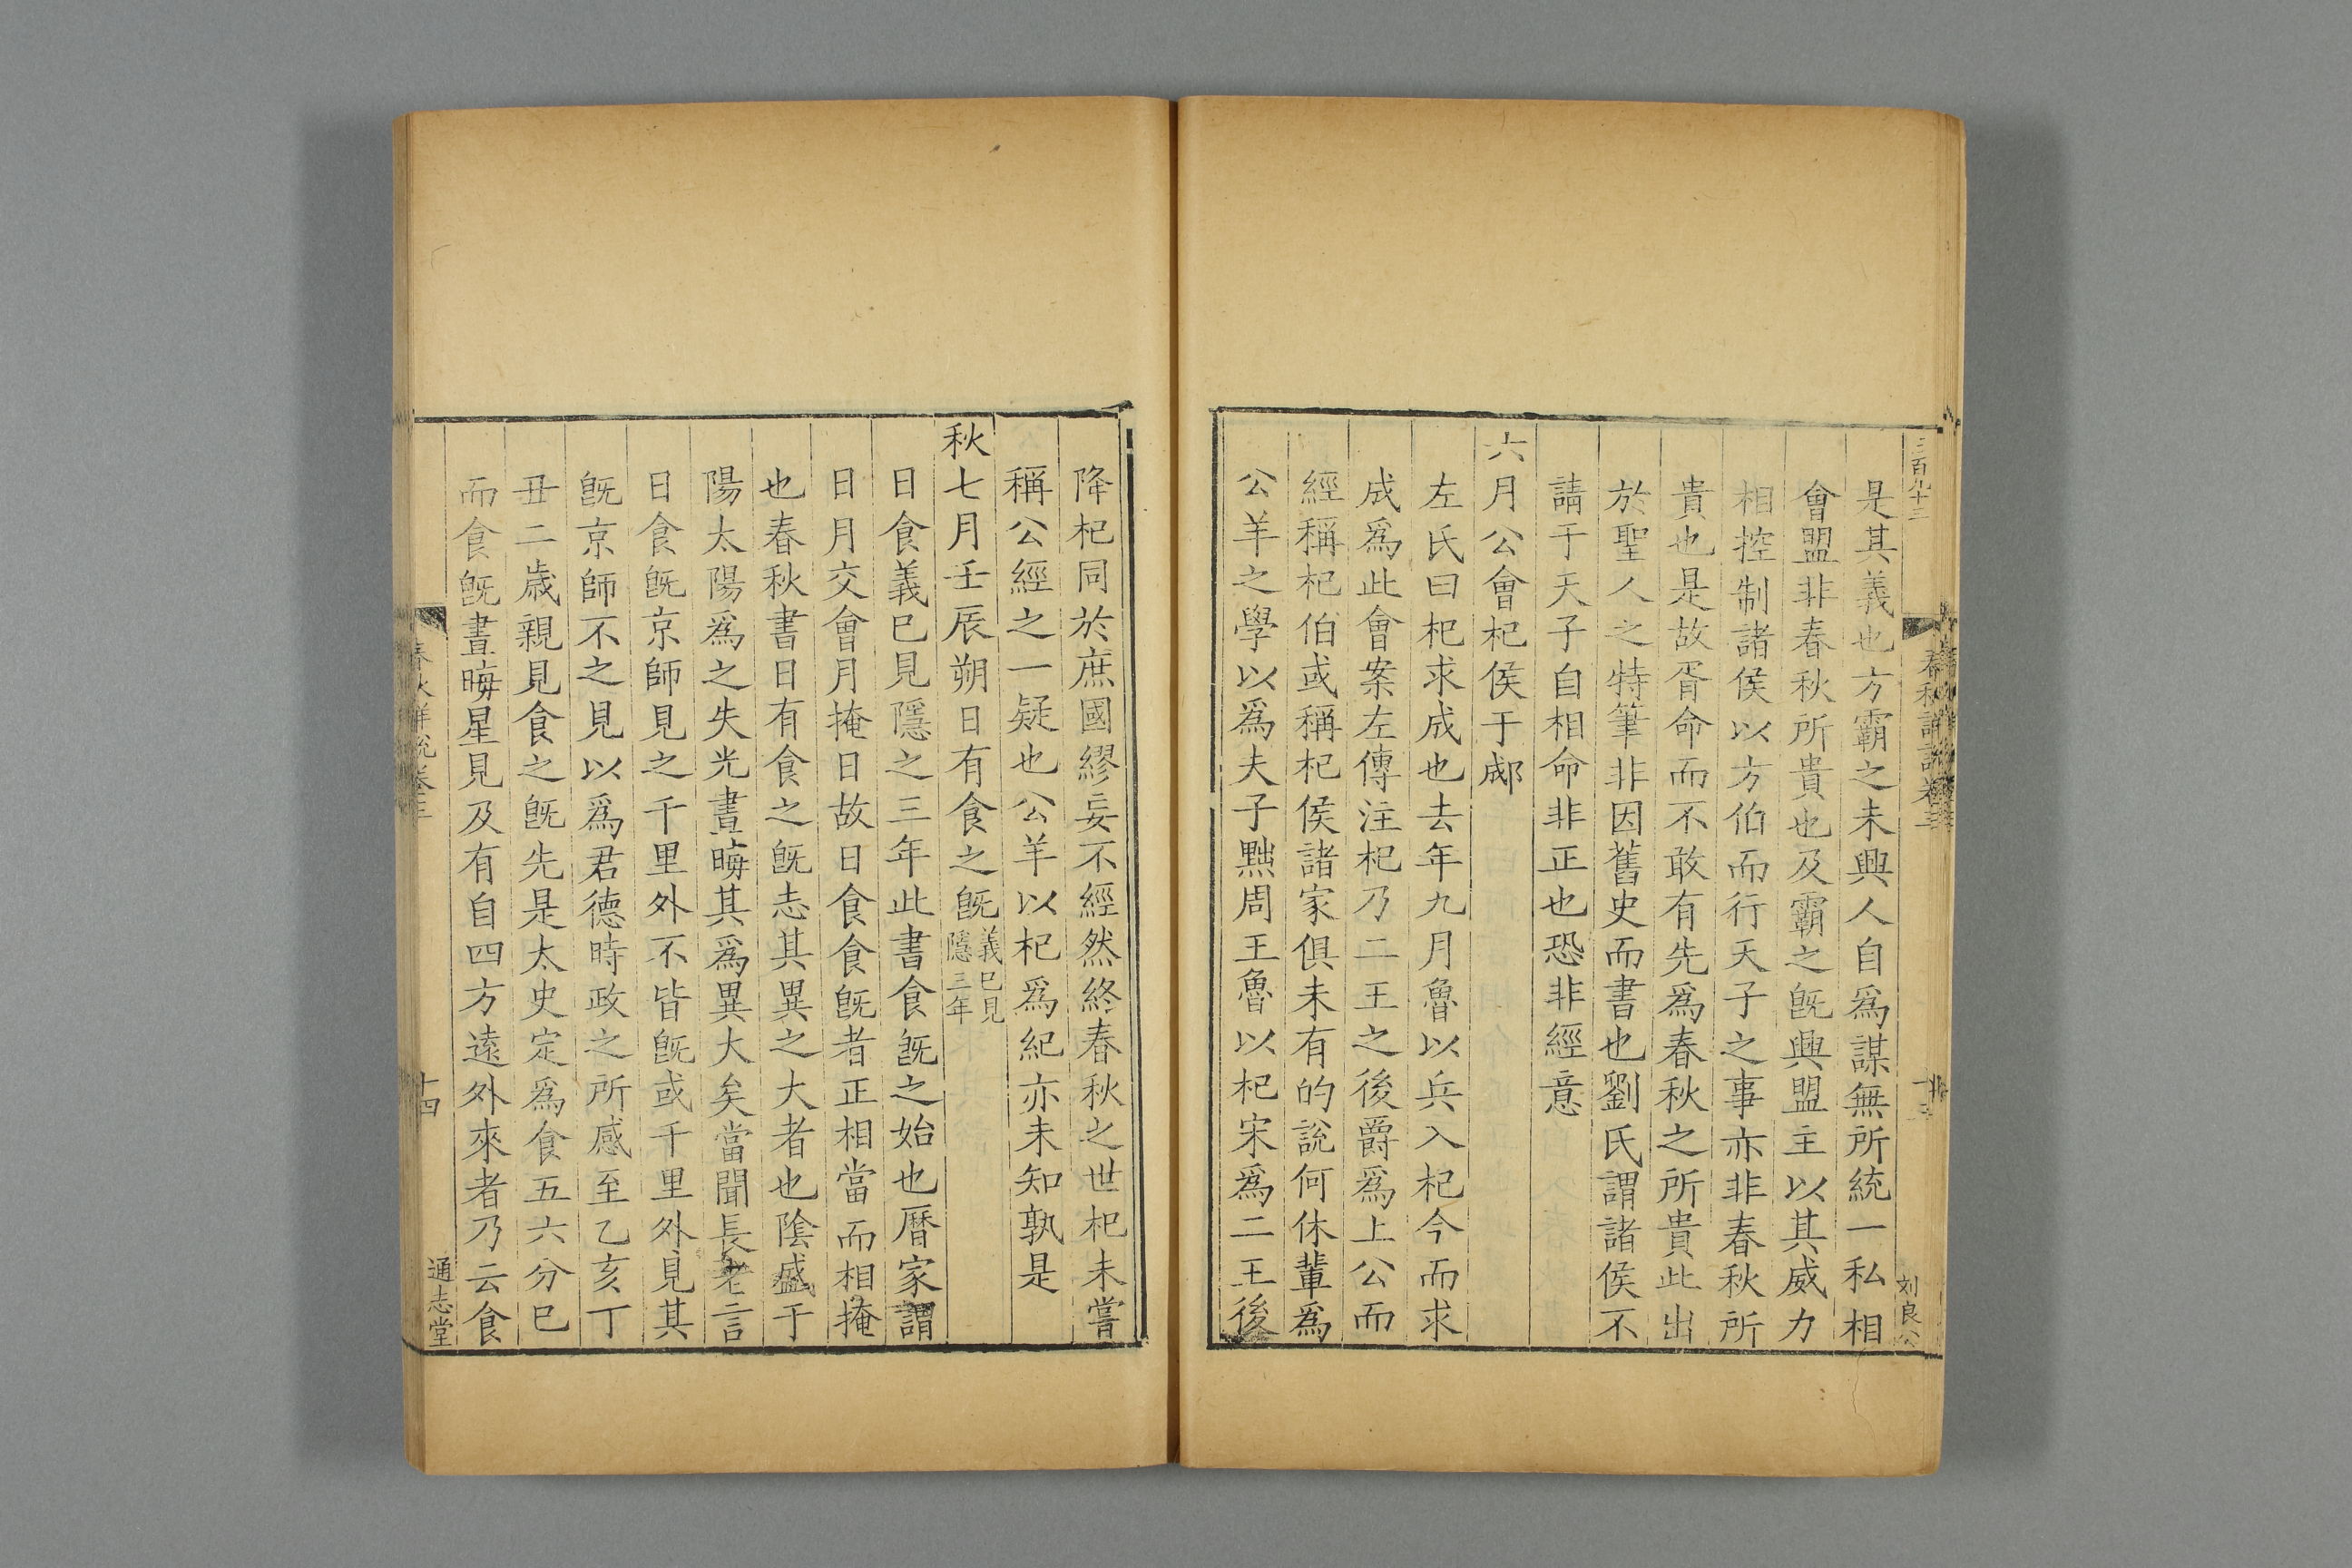 是其義也方霸之未興人自爲謀無所統一私相
會盟非春秋所貴也及霸之旣興盟主以其威力
相控制諸侯以方伯而行天子之事亦非春秋所
貴也是故胥命而不敢有先爲春秋之所貴此出
於聖人之特筆非因舊史而書也劉氏謂諸侯不
請于天子自相命非正也恐非經意
六月公會杞侯于郕
左氏曰杞求成也去年九月魯以兵入杞今而求
成爲此會案左傳注杞乃二王之後爵爲上公而
經稱杞伯或稱杞侯諸家俱未有的說何休輩爲
公羊之學以爲夫子黜周王魯以杞宋爲二王後
降杞同於庶國繆妄不經然終春秋之世杞未嘗
稱公經之一疑也公羊以杞爲紀亦未知孰是
秋七月壬辰朔日有食之旣義已見隱三年
日食義已見隱之三年此書食旣之始也曆家謂
日月交會月掩日故日食食旣者正相當而相掩
也春秋書日有食之旣志其異之大者也陰盛于
陽太陽爲之失光晝晦其爲異大矣當聞長老言
日食旣京師見之千里外不皆旣或千里外見其
旣京師不之見以爲君德時政之所感至乙亥丁
丑二歲親見食之旣先是太史定爲食五六分已
而食旣晝晦星見及有自四方遠外來者乃云食
春秋詳說卷三
十四
通志堂